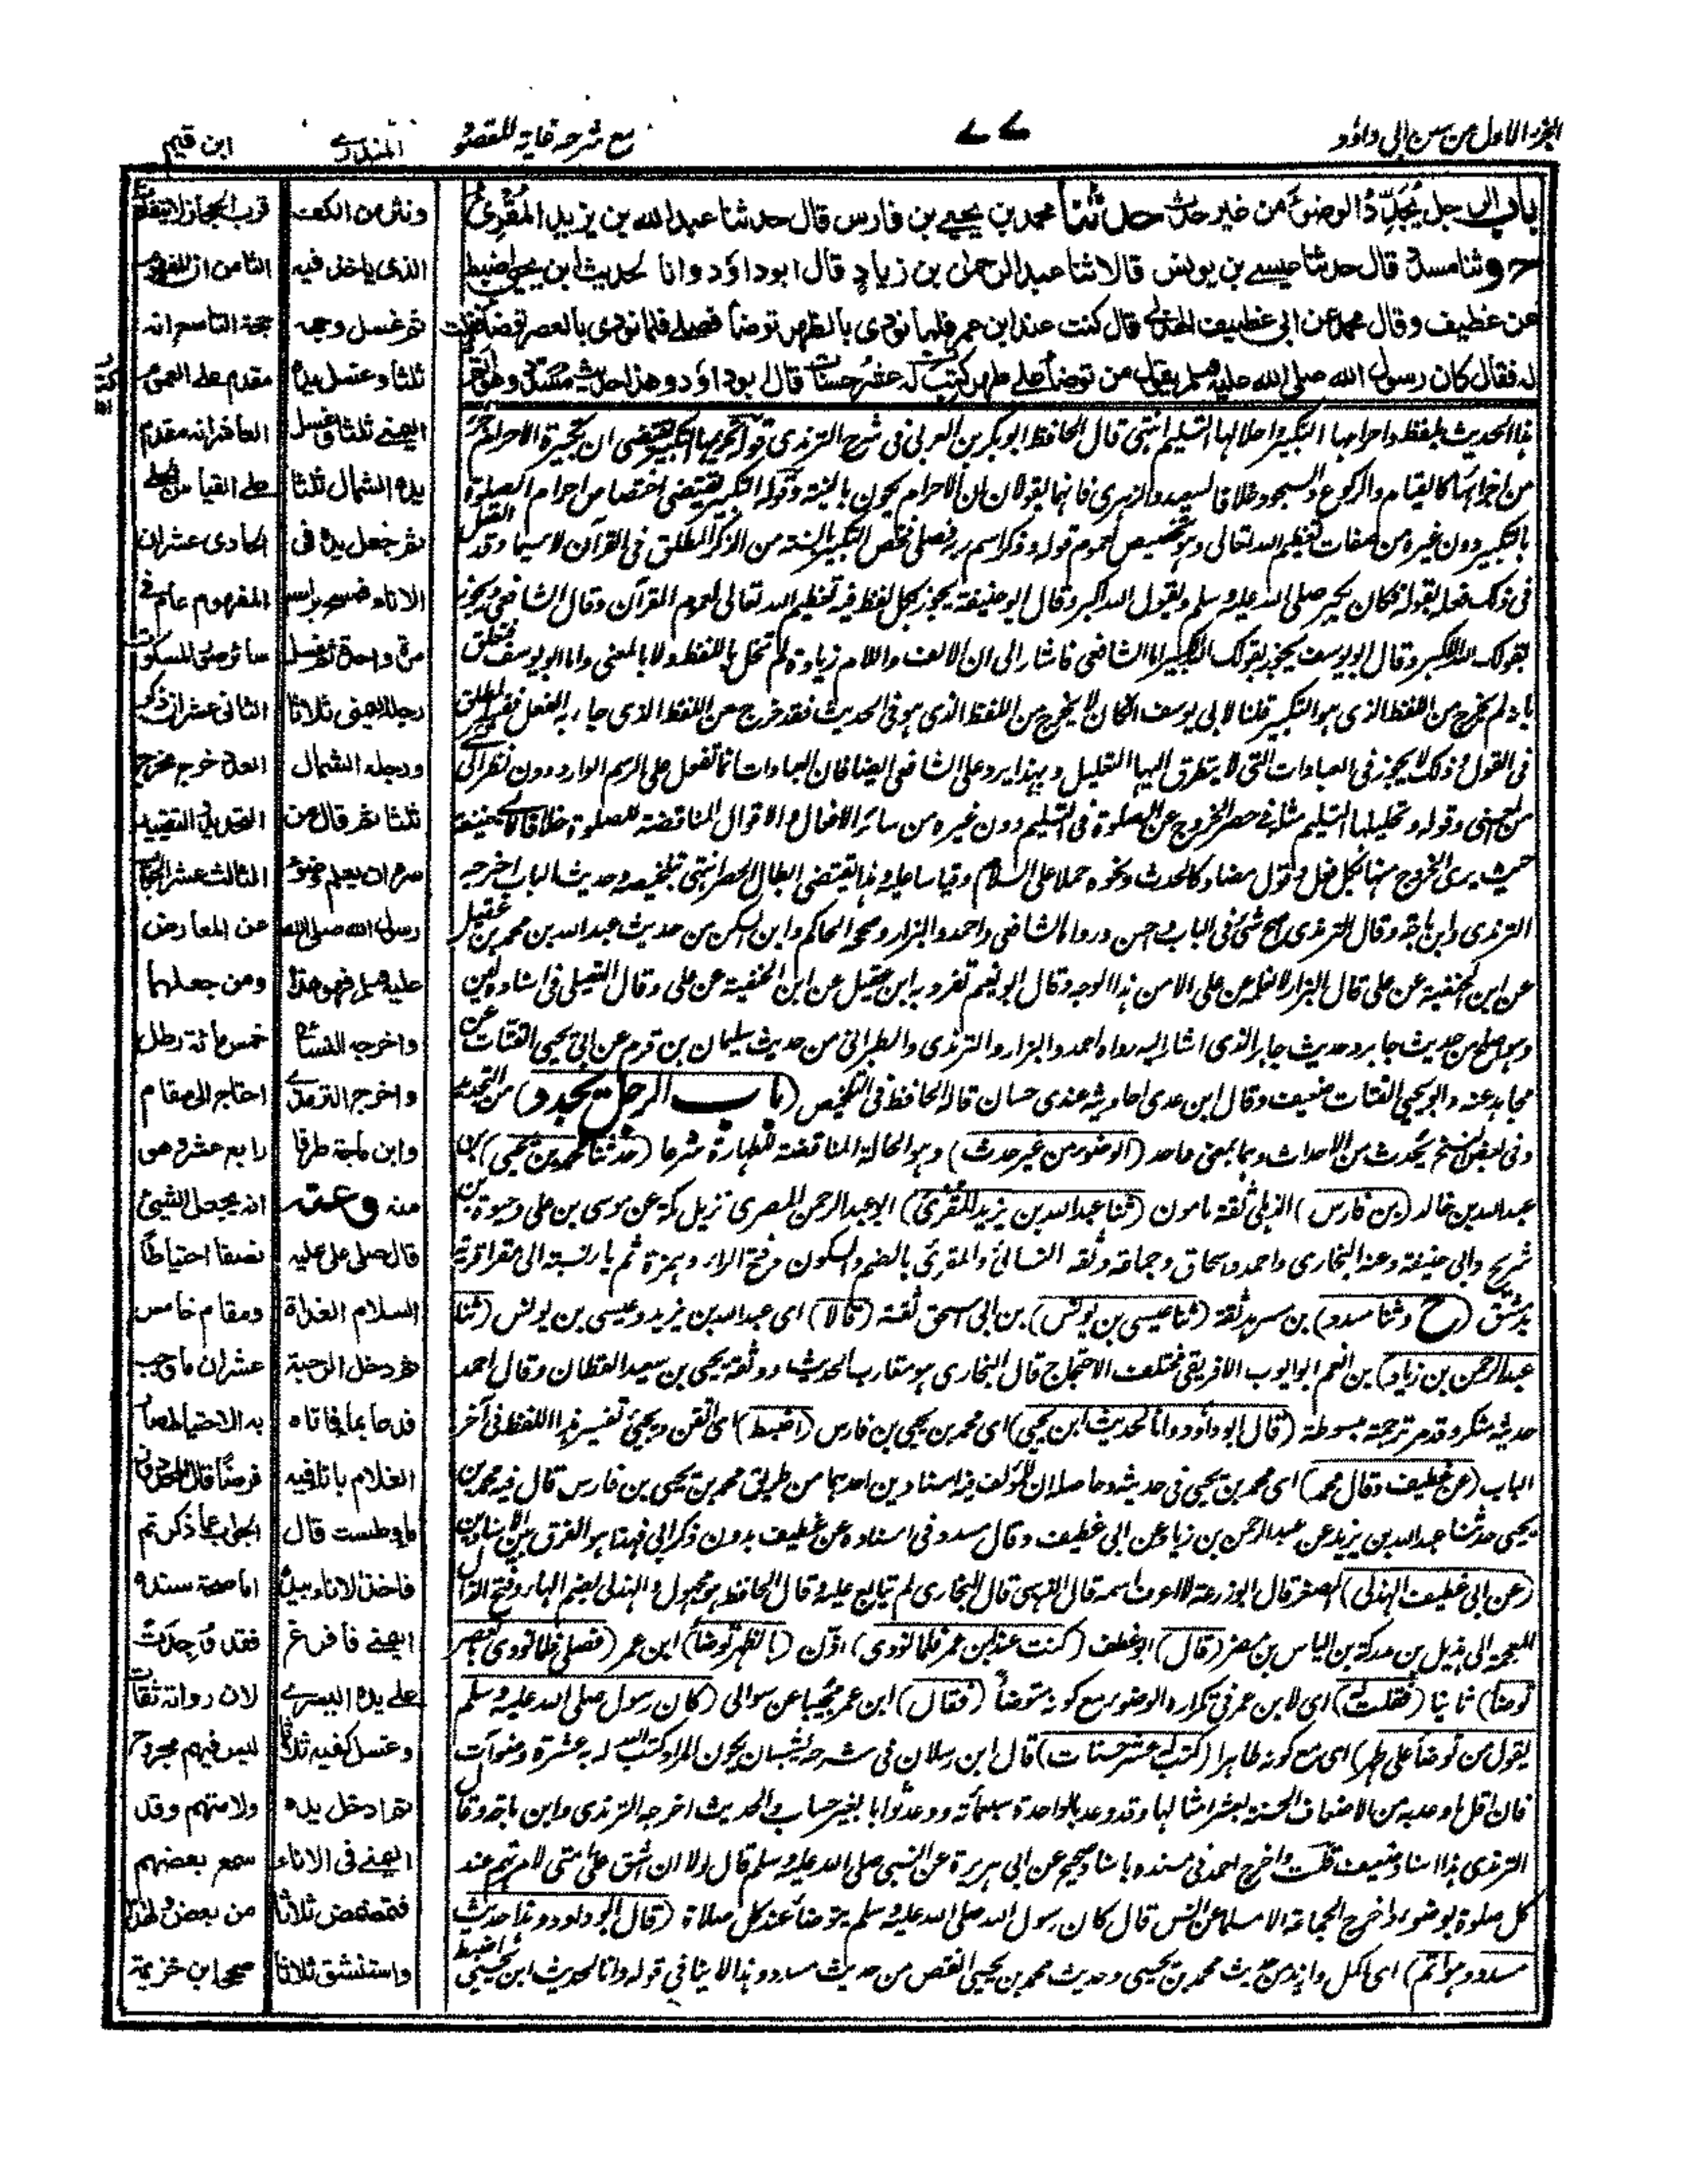 الجزء الاول من سنن ابی داؤد
۷۷
مع شرحه غاية المقصود
المنذری
ابن قيم
باب الرجل يُجَدِّدُ الوضوءَ من غير حدث حدثنا محمد بن يحيى بن فارس قال حدثنا عبد الله بن يزيد المُقْرِئُ
ح وثنا مسدد قال حدثنا عيسى بن يونس قالا ثنا عبد الرحمن بن زياد قال ابو داؤد وانا لحديث ابن يحيى اضبط
عن غطيف وقال محمد عن ابى غطيف الهذلى قال كنت عند ابن عمر فلما نودى بالظهر توضأ فصلى فلما نودى بالعصر توضأ فقلت
له فقال كان رسول الله صلى الله عليه وسلم يقول من توضأ على طهر كتب له عشر حسنات قال ابو داؤد وهذا حديث مسدد وهو اتم
هذا الحديث بلفظ واحرامها التكبير واحلالها التسليم انتهى قال الحافظ ابو بكر بن العربى فى شرح الترمذى قوله تحريمها التكبير يقتضى ان تكبيرة الاحرام جزء
من اجزائها كالقيام والركوع والسجود خلافا لسعيد والزهرى فانهما يقولان ان الاحرام يكون بالنية وقوله التكبير يقتضى اختصاص احرام الصلوة
بالتكبير دون غيره من صفات تعظيم الله تعالى وهو تخصيص لعموم قوله وذكر اسم ربه فصلى فخص التكبير بالسنة من الذكر المطلق فى القرآن لا سيما وقد اتصل
فى ذلك فعله بقوله فكان يكبر صلى الله عليه وسلم ويقول الله اكبر وقال ابو حنيفة يجوز بكل لفظ فيه تعظيم الله تعالى لعموم القرآن وقال الشافعى ويجوز
بقولك الله الاكبر وقال ابو يوسف يجوز بقولك الله الكبير اما الشافعى فاشار الى ان الالف واللام زيادة لم تخل باللفظ ولا بالمعنى واما ابو يوسف فتعلق
بانه لم يخرج من اللفظ الذى هو التكبير قلنا لابى يوسف ان كان لا يخرج من اللفظ الذى هو فى الحديث فقد خرج من اللفظ الذى جاء به الفعل ففسر المطلق
فى القول وذلك لا يجوز فى العبادات التى لا يتطرق اليها التعليل وبهذا يرد على الشافعى ايضا فان العبادات انما تفعل على الرسم الوارد دون نظر الى شئ
من المعنى وقوله وتحليلها التسليم مثله فى حصر الخروج عن الصلوة فى التسليم دون غيره من سائر الافعال والاقوال المناقضة للصلوة خلافا لابى حنيفة
حيث يرى الخروج منها بكل فعل وقول مضاد كالحدث ونحوه حملا على السلام وقياسا عليه وهذا يقتضى ابطال الحصر انتهى بتلخيصه وحديث الباب اخرجه
الترمذى وابن ماجة وقال الترمذى اصح شئ فى الباب واحسن ورواه الشافعى واحمد والبزار وصححه الحاكم وابن السكن من حديث عبد الله بن محمد بن عقيل
عن ابن الحنفية عن على قال البزار لا نعلمه عن على الا من هذا الوجه وقال ابو نعيم تفرد به ابن عقيل عن ابن الحنفية عن على وقال العقيلى فى اسناده لين
وهو اصلح من حديث جابر وحديث جابر الذى اشار اليه رواه احمد والبزار والترمذى والطبرانى من حديث سليمان بن قرم عن ابى يحيى القتات عن
مجاهد عنه وابو يحيى القتات ضعيف وقال ابن عدى احاديثه عندى حسان قاله الحافظ فى التلخيص (باب الرجل يجدد) من التجديد
وفى بعض النسخ يحدث من الاحداث وهما بمعنى واحد (الوضوء من غير حدث) وهو الحالة المناقضة للطهارة شرعا (حدثنا محمد بن يحيى) بن
عبد الله بن خالد (بن فارس) الذهلى ثقة مامون (ثنا عبد الله بن يزيد المقرئ) ابو عبد الرحمن المصرى نزيل مكة عن موسى بن على وحيوة بن
شريح وابى حنيفة وعنه البخارى واحمد واسحاق وجماعة وثقه النسائى والمقرئ بالضم والسكون وفتح الراء وهمزة ثم ياء نسبة الى مقرا قرية
بدمشق (ح وثنا مسدد) بن مسرهد ثقة (ثنا عيسى بن يونس) بن ابى اسحق ثقة (قالا) اى عبد الله بن يزيد وعيسى بن يونس (ثنا
عبد الرحمن بن زياد) بن انعم ابو ايوب الافريقى مختلف الاحتجاج قال البخارى هو مقارب الحديث ووثقه يحيى بن سعيد القطان وقال احمد
حديثه منكر وقد مر ترجمته مبسوطة (قال ابو داؤد وانا لحديث ابن يحيى) اى محمد بن يحيى بن فارس (اضبط) اى اتقن ويجئ تفسير هذا اللفظ فى آخر
الباب (عن غطيف وقال محمد) اى محمد بن يحيى فى حديثه وحاصله ان للمؤلف فيه اسنادين احدهما من طريق محمد بن يحيى بن فارس قال فيه محمد بن
يحيى حدثنا عبد الله بن يزيد عن عبد الرحمن بن زياد عن ابى غطيف وقال مسدد فى اسناده عن غطيف بدون ذكر ابى فهذا هو الفرق بين الاسنادين
(عن ابى غطيف الهذلى) مصغر قال ابو زرعة لا اعرف اسمه قال الذهبى قال البخارى لم يتابع عليه وقال الحافظ هو مجهول والهذلى بضم الهاء وفتح الذال
المعجمة الى هذيل بن مدركة بن الياس بن مضر (قال) ابو غطيف (كنت عند ابن عمر فلما نودى) اذن (بالظهر توضأ) ابن عمر (فصلى فلما نودى بالعصر
توضأ) ثانيا (فقلت له) اى لابن عمر فى تكراره الوضوء مع كونه متوضأ (فقال) ابن عمر مجيبا عن سوالى (كان رسول الله صلى الله عليه وسلم
يقول من توضأ على طهر) اى مع كونه طاهرا (كتب له عشر حسنات) قال ابن رسلان فى شرحه يشبه ان يكون المراد كتب الله له به عشرة وضوآت
فان اقل ما وعد به من الاضعاف الحسنة بعشر امثالها وقد وعد بالواحدة سبعمائة ووعد ثوابا بغير حساب والحديث اخرجه الترمذى وابن ماجة وقال
الترمذى هذا اسناد ضعيف قلت واخرج احمد فى مسنده باسناد صحيح عن ابى هريرة عن النبى صلى الله عليه وسلم قال لولا ان اشق على امتى لامرتهم عند
كل صلوة بوضوء واخرج الجماعة الا مسلما عن انس قال كان رسول الله صلى الله عليه وسلم يتوضأ عند كل صلاة (قال ابو داود وهذا حديث
مسدد وهو اتم) اى اكمل وازيد من حديث محمد بن يحيى وحديث محمد بن يحيى انقص من حديث مسدد وهذا لا ينافى قوله وانا لحديث ابن يحيى اضبط
ونثر من الكف
الذى ياخذ فيه
ثم غسل وجهه
ثلثا وغسل يده
اليمنى ثلثا وغسل
يده الشمال ثلثا
ثم جعل يده فى
الاناء فمسح برأسه
مرة واحدة ثم غسل
رجله اليمنى ثلاثا
ورجله الشمال
ثلثا ثم قال من
سره ان يعلم وضوء
رسول الله صلى الله
عليه وسلم فهو هذا
واخرجه النسائى
واخرج الترمذى
وابن ماجة طرفا
منه وعنه
قال صلى على عليه
السلام الغداة
ثم دخل الرحبة
فدعا بماء فاتاه
الغلام باناء فيه
ماء وطست قال
فاخذ الاناء بيده
اليمنى فافرغ
على يده اليسرى
وغسل كفيه ثلاثا
ثم ادخل يده
اليمنى فى الاناء
فمضمض ثلاثا
واستنشق ثلاثا
الثامن ان المفهوم
حجة التاسع انه
مقدم على العموم
العاشر انه مقدم
على القياس الجلى
الحادى عشر ان
المفهوم عام فى
سائر صور المسكوت
الثانى عشر ان ذكر
العدد خرج مخرج
التحديد والتقييد
الثالث عشر الجواب
عن المعارض
ومن جعلها
خمس مائة رطل
احتاج الى مقام
رابع عشر وهو
انه يجعل الشئ
نصفا احتياطا
ومقام خامس
عشر ان ما وجب
به الاحتياط صار
فرضا قال المحددون
الجواب عما ذكرتم
اما صحة سنده
فقد وجدت
لان رواته ثقات
ليس فيهم مجروح
ولا متهم وقد
سمع بعضهم
من بعض ولهذا
صححه ابن خزيمة